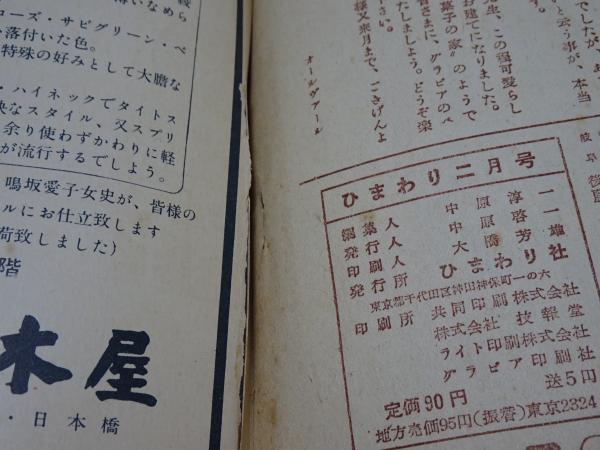 でしたが、
と云う事が、本当
先生、この程可愛らし
お建てになりました。
菓子の家〟のようで
皆さまに、グラビアのペ
たしましょう。どうぞ楽
さい。
様又来月まで、ごきげんよ
オールゲアール
岐阜
ひまわり二月号
編集人 中原淳一
発行人 中原啓一
印刷人 大橋芳雄
発行所 ひまわり社
東京都千代田区神田神保町一の六
印刷所 共同印刷株式会社
株式会社 技報堂
ライト印刷株式会社
グラビア印刷社
定価90円 送5円
地方売価95円(振替)東京2324
ローズ・サビグリーン・ベ
落付いた色。
特殊の好みとして大胆な
・ハイネックでタイトス
快なスタイル、又スプリ
余り使わずかわりに軽
が流行するでしょう。
鳴坂愛子女史が、皆様の
ルにお仕立致します
荷致しました)
階
木屋
・日本橋